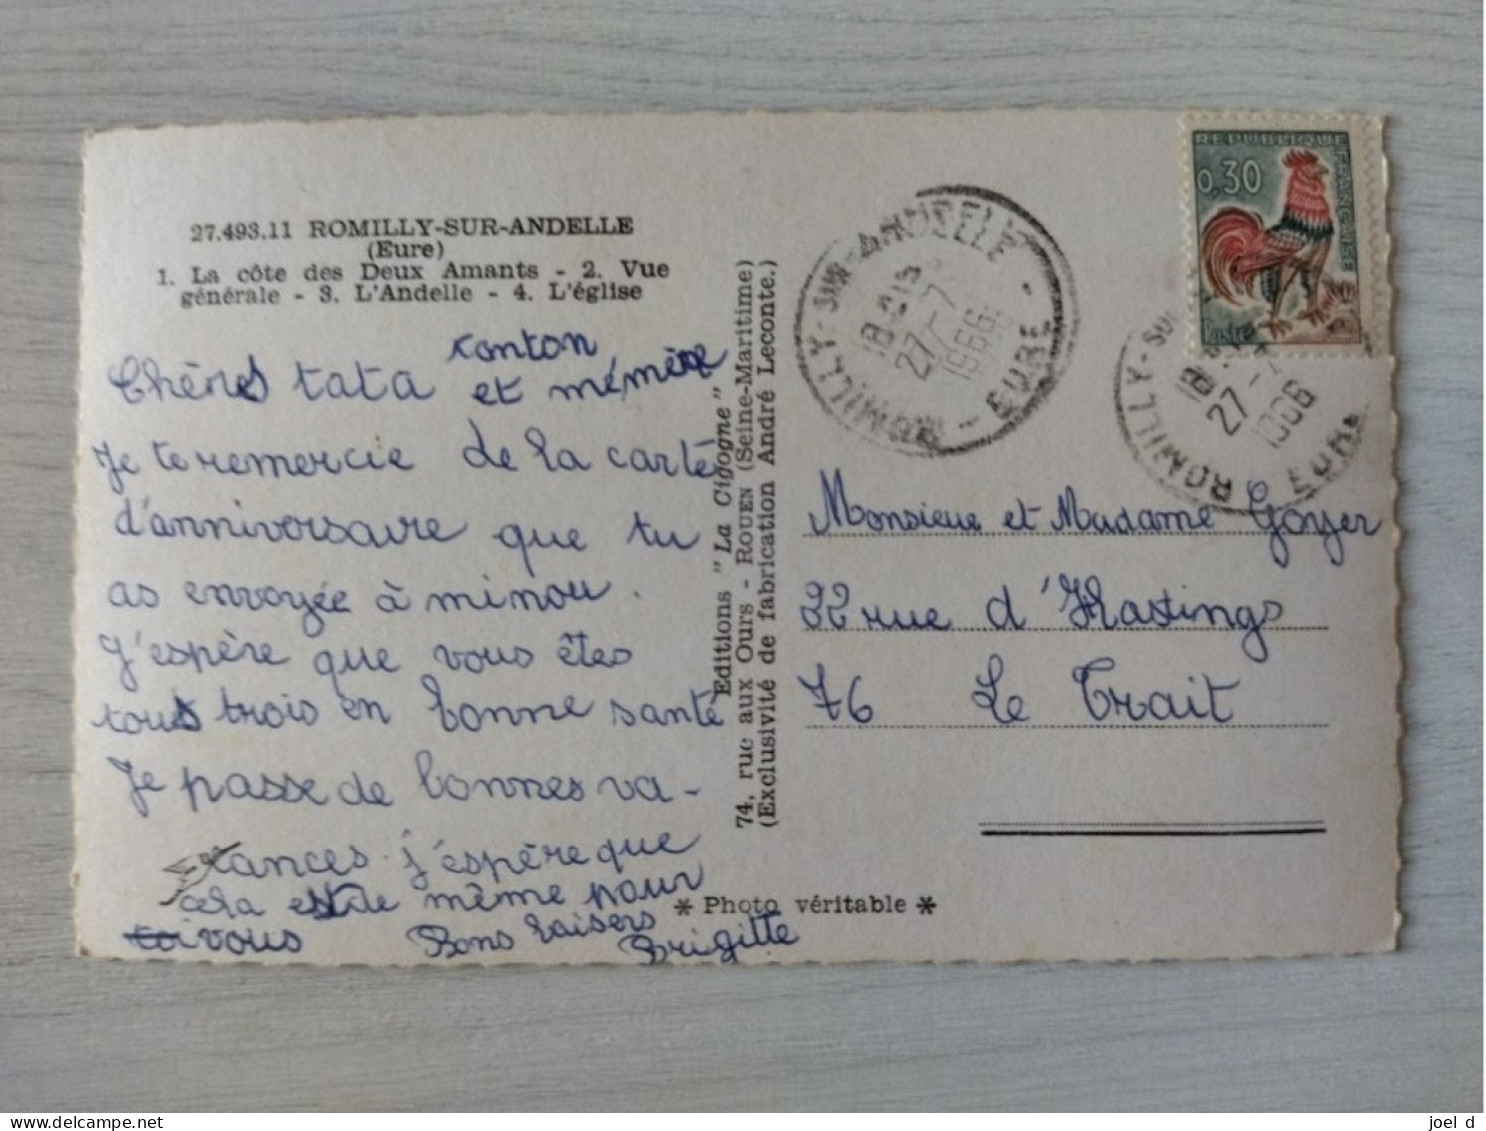 27.493.11 ROMILLY-SUR-ANDELLE
(Eure)
1. La côte des Deux Amants - 2. Vue
générale - 3. L'Andelle - 4. L'église
tonton
Chères tata et mémère
Je te remercie de la carte
d'anniversaire que tu
as envoyée à minou.
J'espère que vous êtes
tous trois en bonne santé
Je passe de bonnes va-
cances. j'espère que
cela est de même pour
toi vous Bons baisers
Brigitte
Editions "La Cigogne"
74, rue aux Ours - ROUEN (Seine-Maritime)
(Exclusivité de fabrication André Leconte.)
* Photo véritable *
ROMILLY-SUR-ANDELLE
27-7
1966
EURE
REPUBLIQUE FRANÇAISE
0,30
Postes
ROMILLY-SUR
18
27-7
1966
EURE
Monsieur et Madame Goyer
22 rue d'Hastings
76 Le Trait
joel d